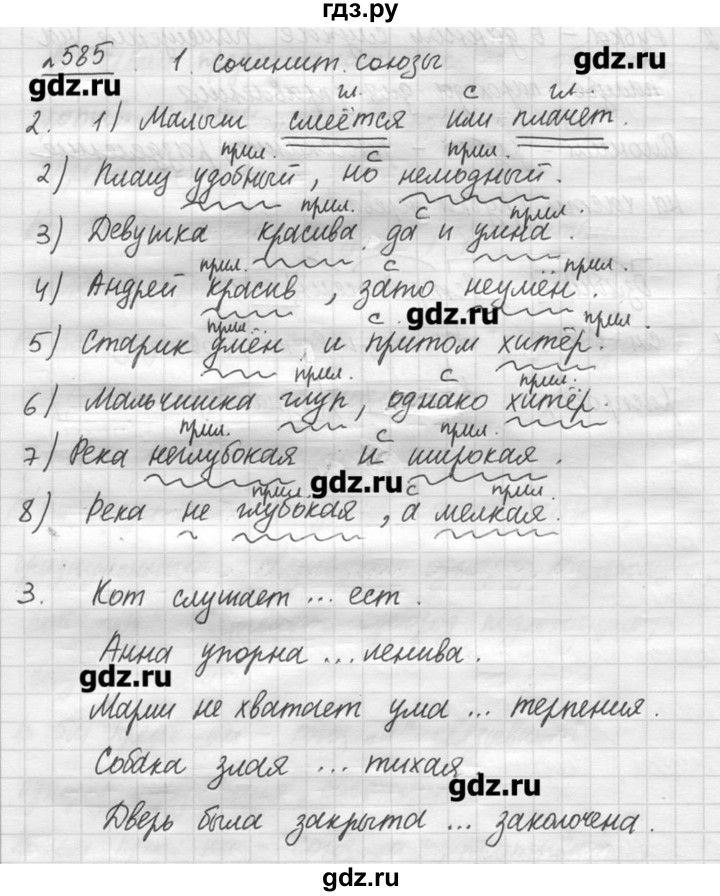 гдз.ру
№585. 1. сочинит. союзы
gdz.ru gdz.ru
гл. с гл.
2. 1) Малыш смеётся или плачет.
прил. с прил.
2) Плащ удобный, но немодный.
прил. с прил.
3) Девушка красива да и умна.
прил. с прил.
4) Андрей красив, зато неумён.
gdz.ru
прил. с прил.
5) Старик умён и притом хитёр.
прил. с прил.
6) Мальчишка глуп, однако хитёр
прил. с прил.
7) Река неглубокая и широкая.
gdz.ru
прил. с прил.
8) Река не глубокая, а мелкая.
3. Кот слушает ... ест.
Анна упорна ... ленива.
gdz.ru
Марии не хватает ума ... терпения.
Собака злая ... тихая
gdz.ru
Дверь была закрыта ... заколочена.
гдз.ру